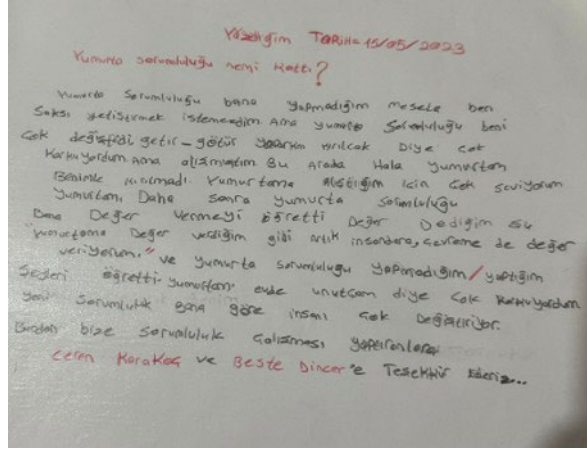 Yazdığım TARİH: 15/05/2023
Yumurta sorumluluğu nemi Kattı?
Yumurta Sorumluluğu bana yapmadığım mesela ben
Saksı yetiştirmek istemezdim. Ama yumurta Sorumluluğu beni
Çok değiştirdi getir-götür yaparken kırılcak Diye çok
Korkuyordum Ama alışmıştım Bu Arada Hala yumurtam
Benimle kırılmadı. Yumurtama alıştığım için Çok seviyorum
Yumurtamı Daha sonra yumurta sorumluluğu
Bana Değer vermeyi öğretti Değer Dediğim şu
"yumurtama Değer verdiğim gibi artık insanlara, çevreme de değer
veriyorum." ve yumurta sorumluluğu yapmadığım/yaptığım
Şeyleri öğretti. yumurtamı evde unutsam diye Çok korkuyordum
yani Sorumluluk Bana göre insanı Çok Değiştiriyor.
Burdan bize sorumluluk Çalışması yaptıranlara
Ceren Karakoç ve Beste Dinçer'e Teşekkür Ederiz...